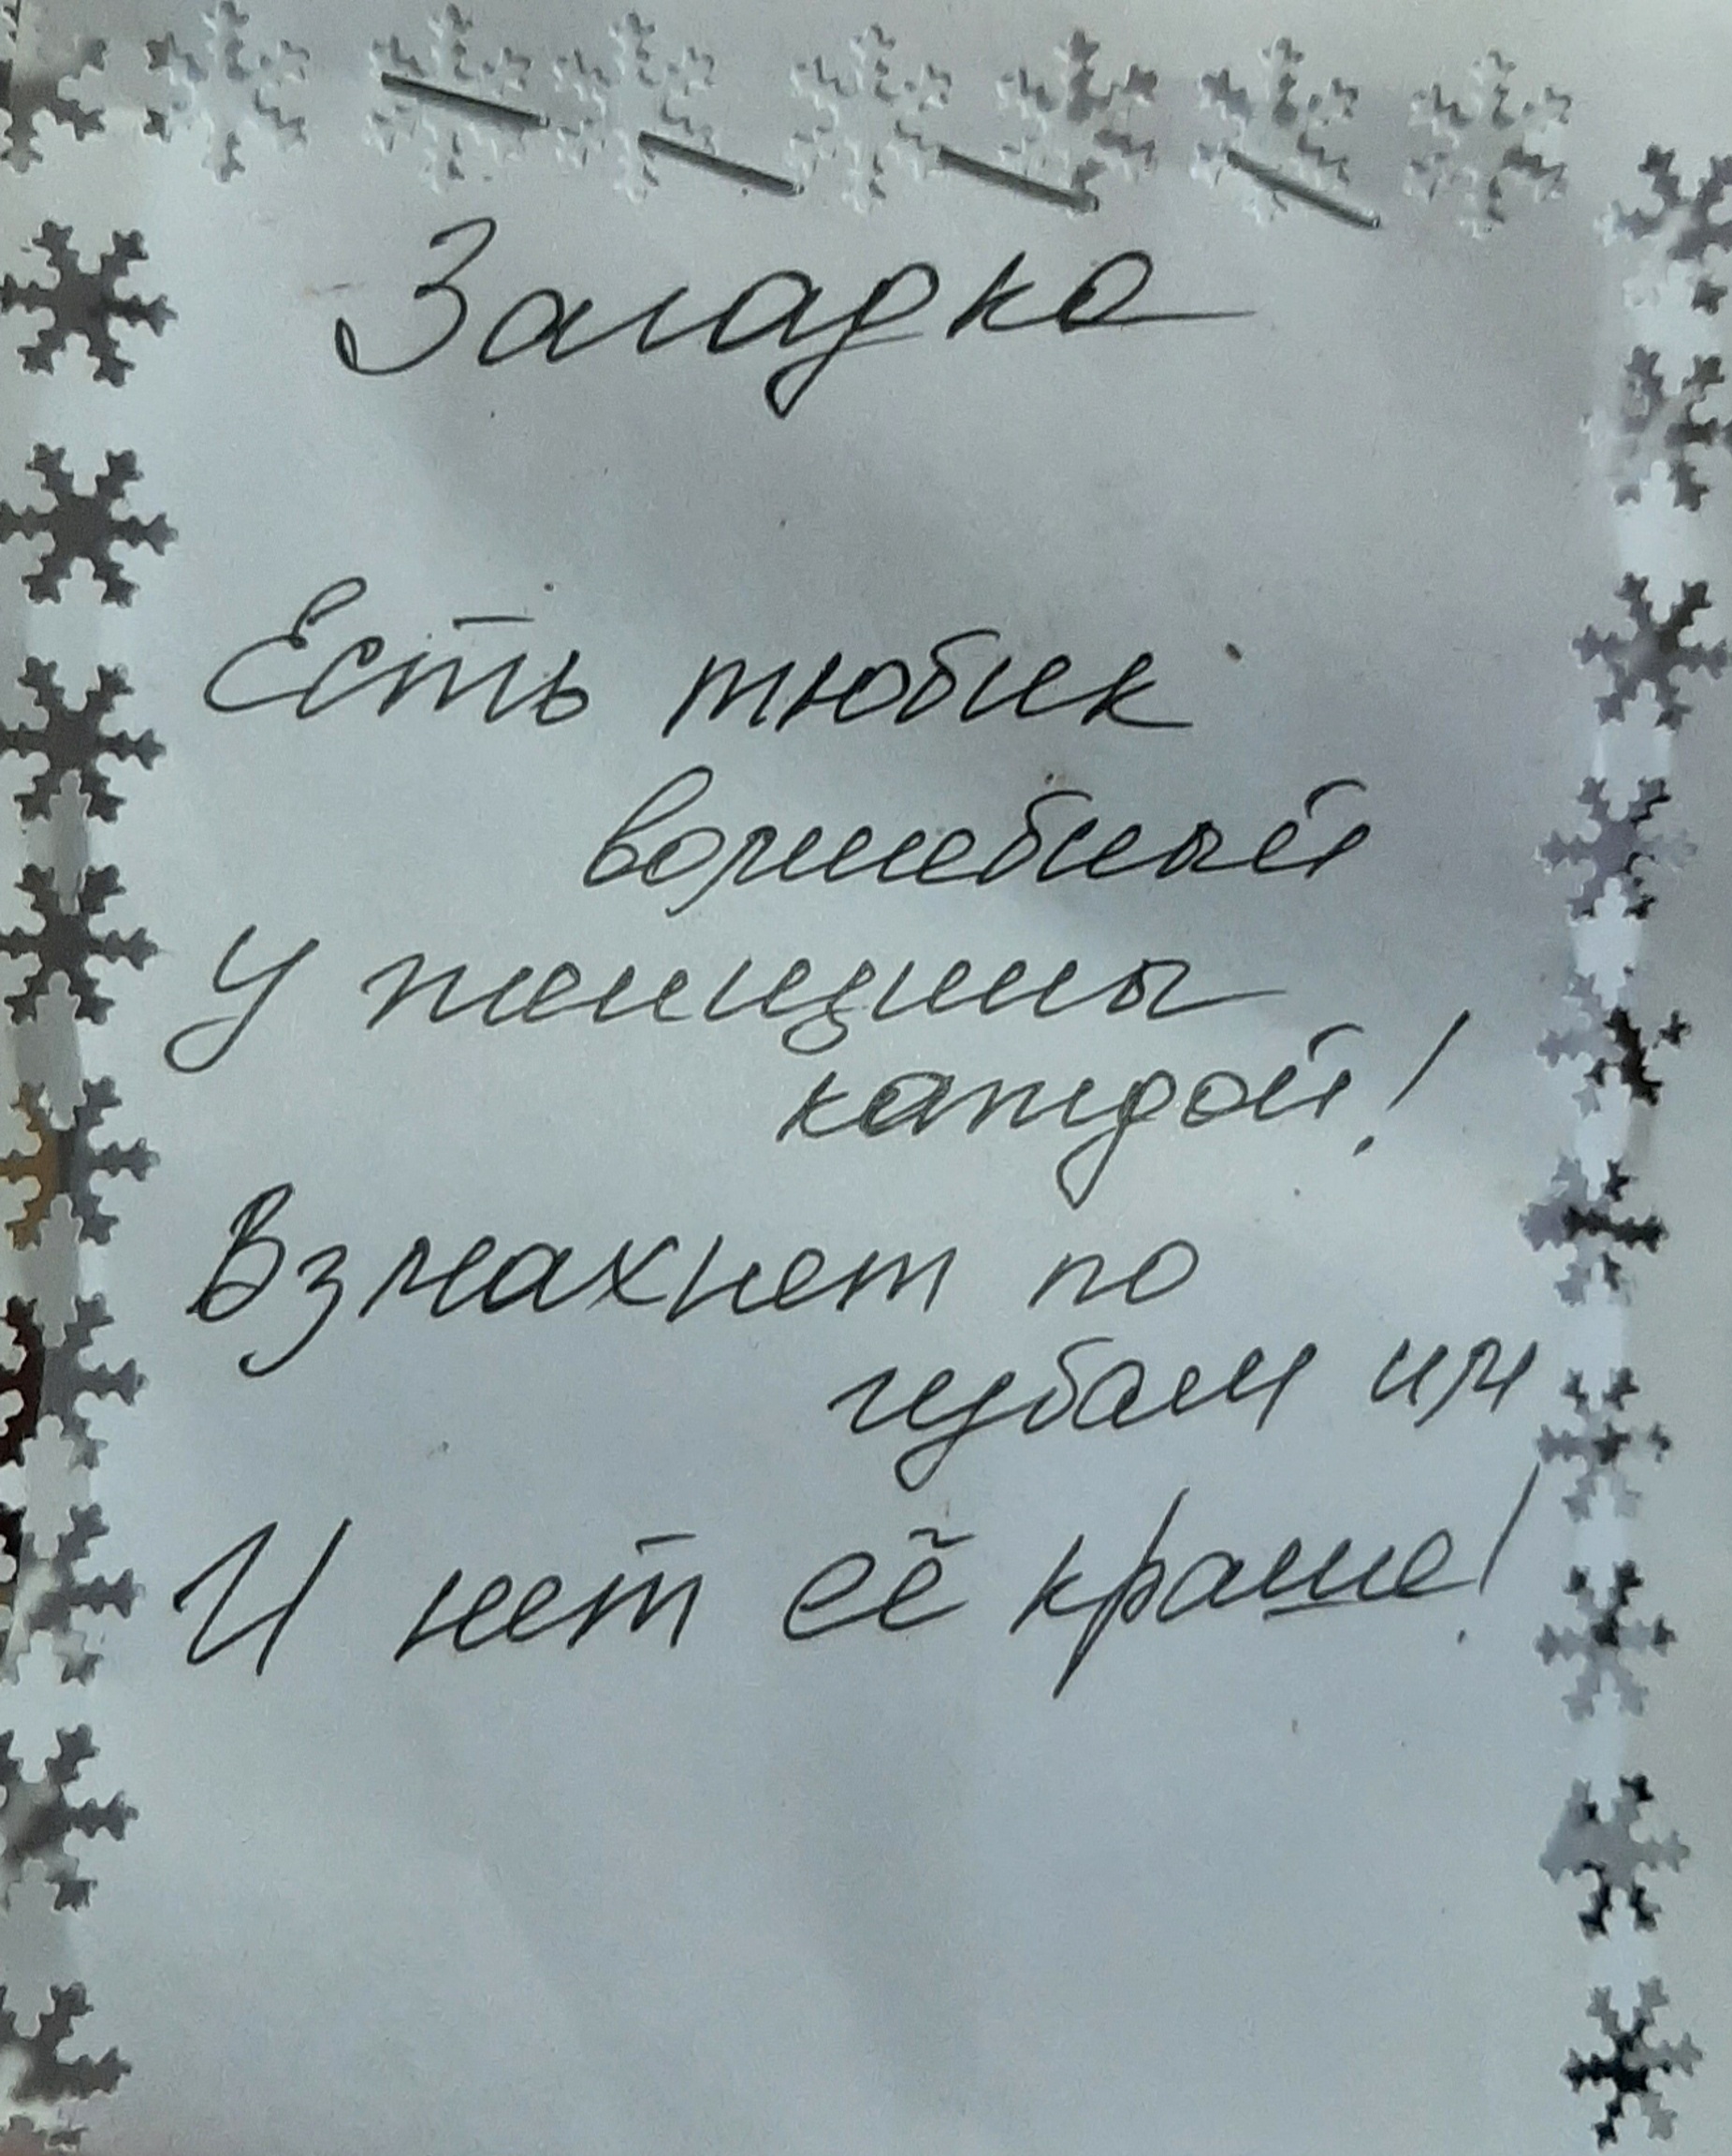 Загадка
Есть тюбик
волшебный
У женщины
каждой!
Взмахнет по
губам им
И нет её краше!